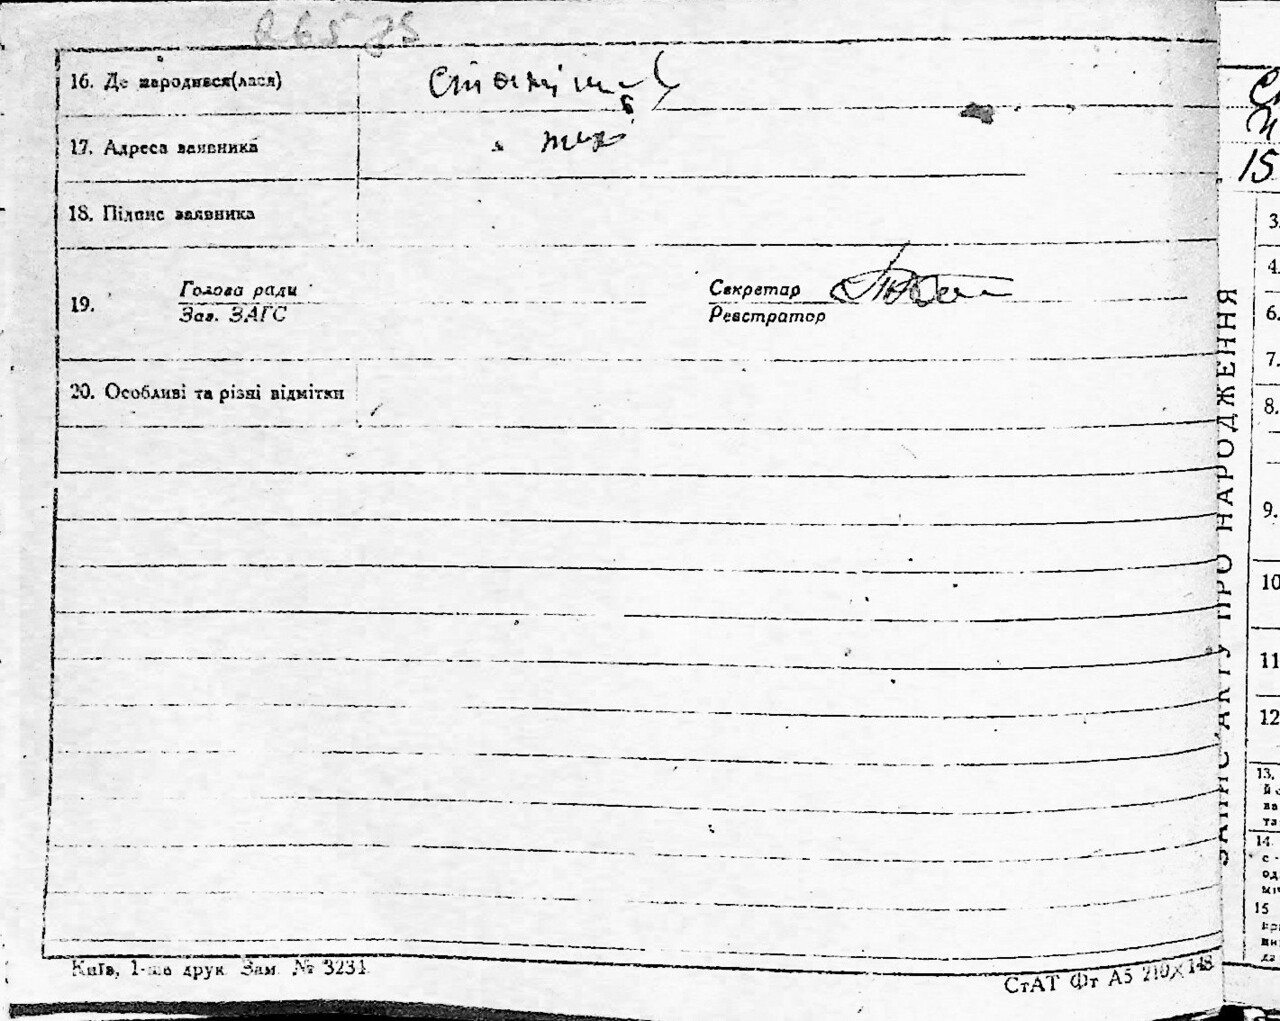 26575
16. Де народився(лася)
17. Адреса заявника
18. Підпис заявника
19. Голова ради
Зав. ЗАГС
Секретар
Реєстратор
20. Особливі та різні відмітки
Київ, 1-ше друк. Зам. № 3231
СтАТ Фт А5 210×148
ЗАПИС АКТУ ПРО НАРОДЖЕННЯ
15
3.
4.
6.
7.
8.
9.
10
11
12
13.
14.
15